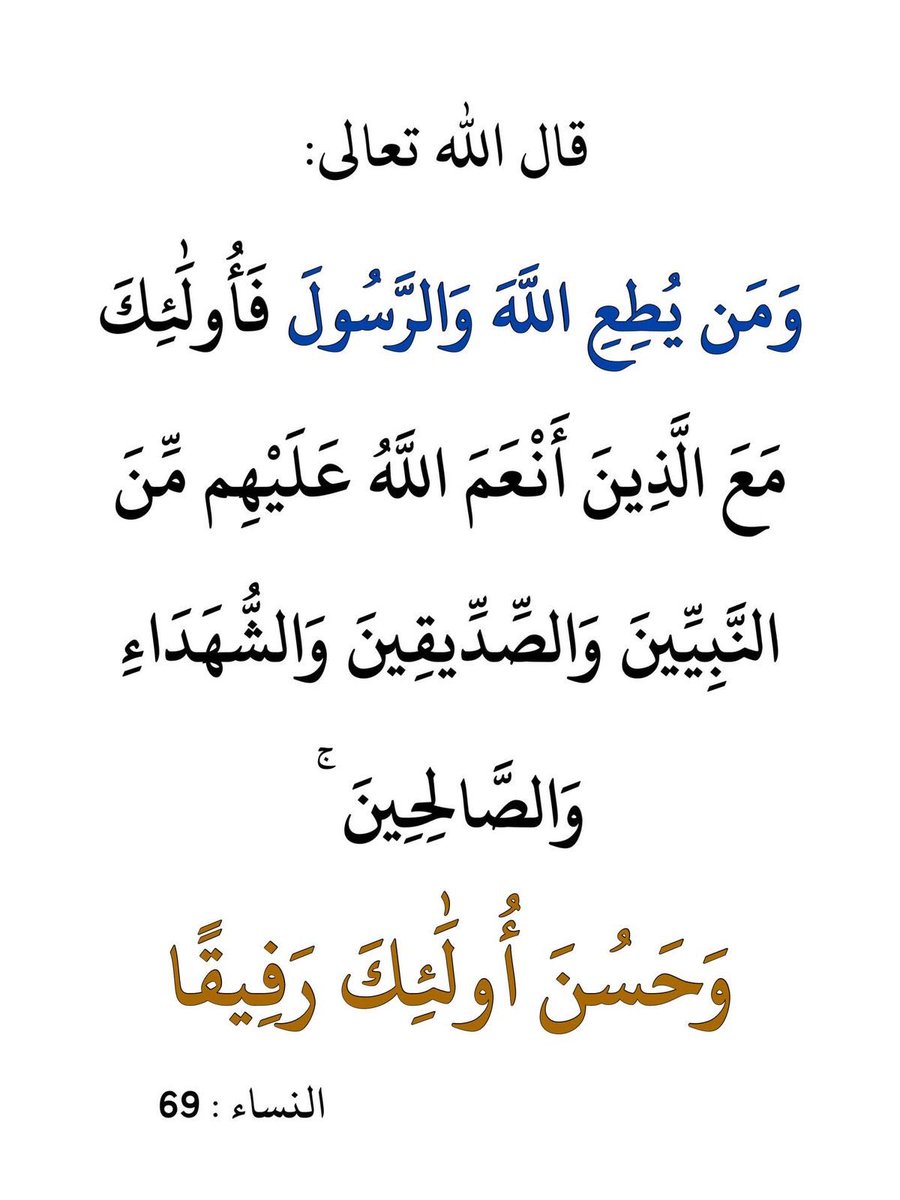 قال الله تعالى:
وَمَن يُطِعِ اللَّهَ وَالرَّسُولَ فَأُولَٰئِكَ
مَعَ الَّذِينَ أَنْعَمَ اللَّهُ عَلَيْهِم مِّنَ
النَّبِيِّينَ وَالصِّدِّيقِينَ وَالشُّهَدَاءِ
وَالصَّالِحِينَ ۚ
وَحَسُنَ أُولَٰئِكَ رَفِيقًا
النساء : 69